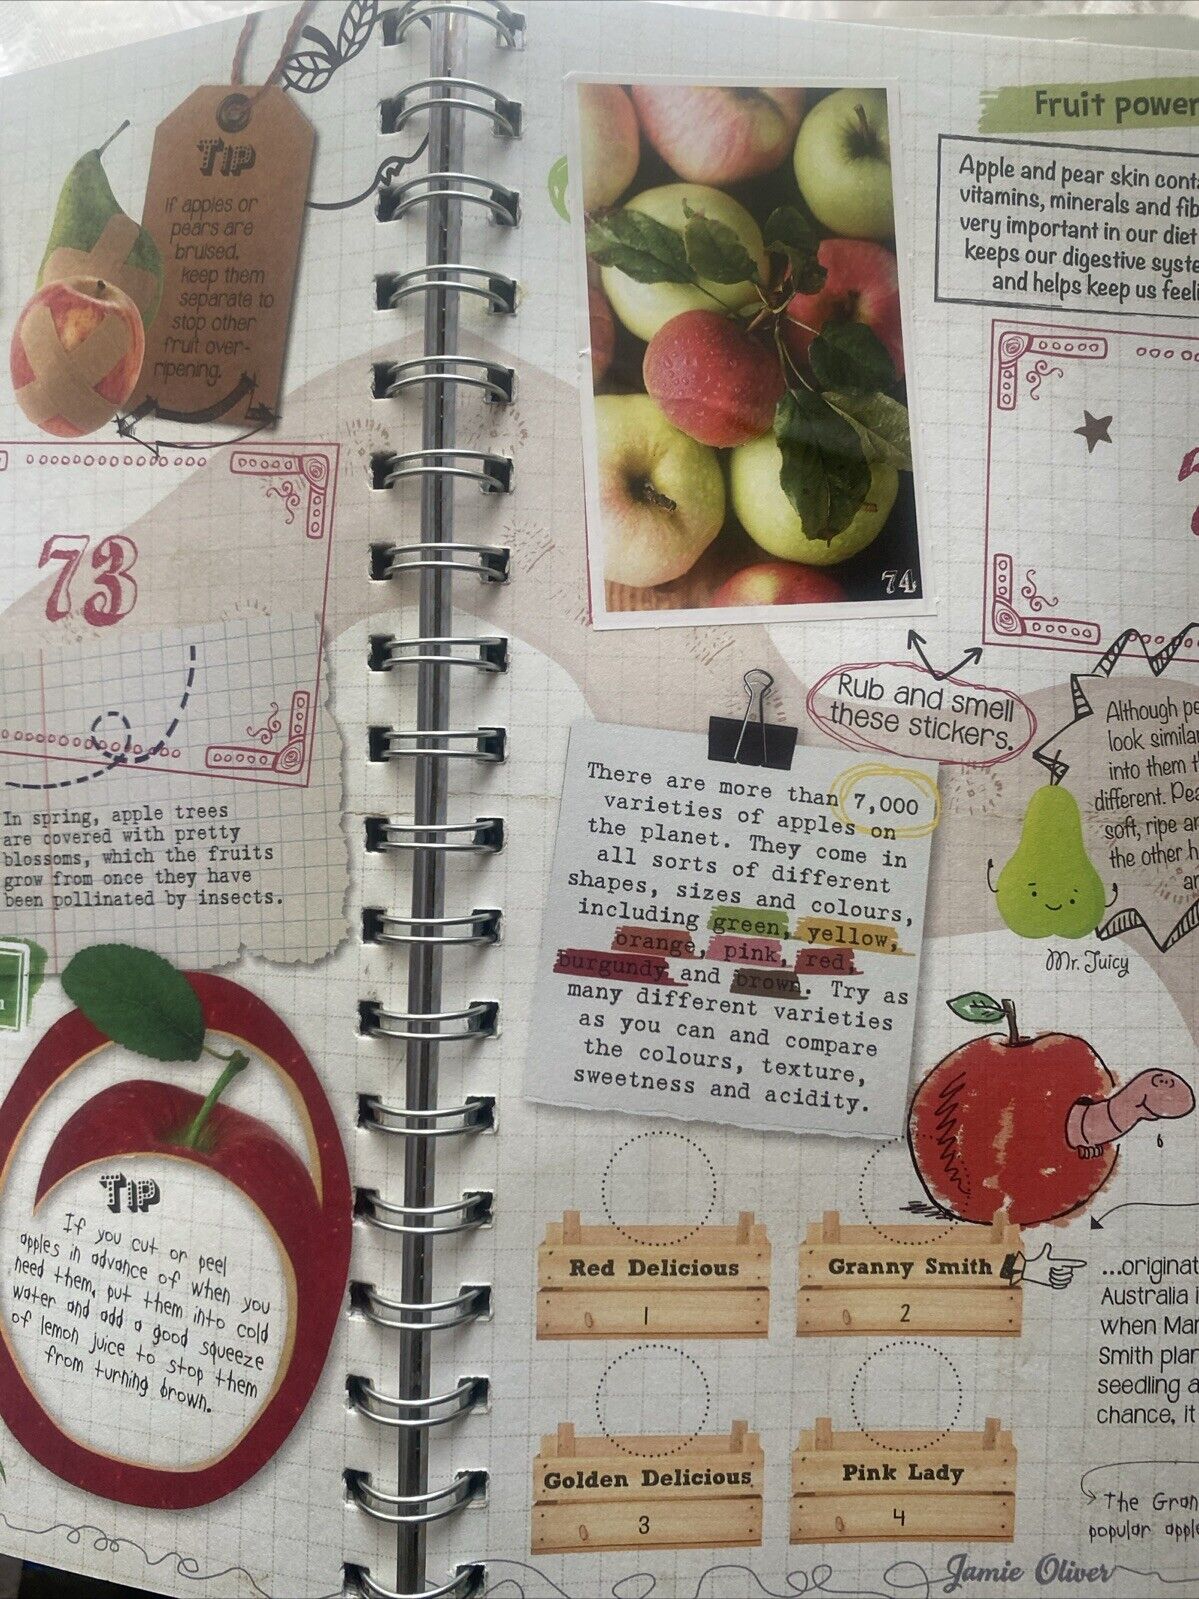 TIP
If apples or
pears are
bruised,
keep them
separate to
stop other
fruit over-
ripening.
73
In spring, apple trees
are covered with pretty
blossoms, which the fruits
grow from once they have
been pollinated by insects.
TIP
If you cut or peel
apples in advance of when you
need them, put them into cold
water and add a good squeeze
of lemon juice to stop them
from turning brown.
74
Rub and smell
these stickers.
There are more than 7,000
varieties of apples on
the planet. They come in
all sorts of different
shapes, sizes and colours,
including green, yellow,
orange, pink, red,
burgundy and brown. Try as
many different varieties
as you can and compare
the colours, texture,
sweetness and acidity.
Red Delicious
1
Granny Smith
2
Golden Delicious
3
Pink Lady
4
Fruit power
Apple and pear skin
vitamins, minerals and
very important in our diet
keeps our digestive
and helps keep us
Although
look
into them
different.
soft, ripe
the other
Mr. Juicy
Australia
when
Smith
seedling
chance, it
The
popular
Jamie Oliver